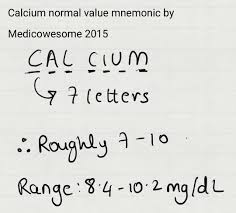 Calcium normal value mnemonic by
Medicowesome 2015
CALCIUM
7 letters
∴ Roughly 7-10
Range: 8.4-10.2 mg/dL